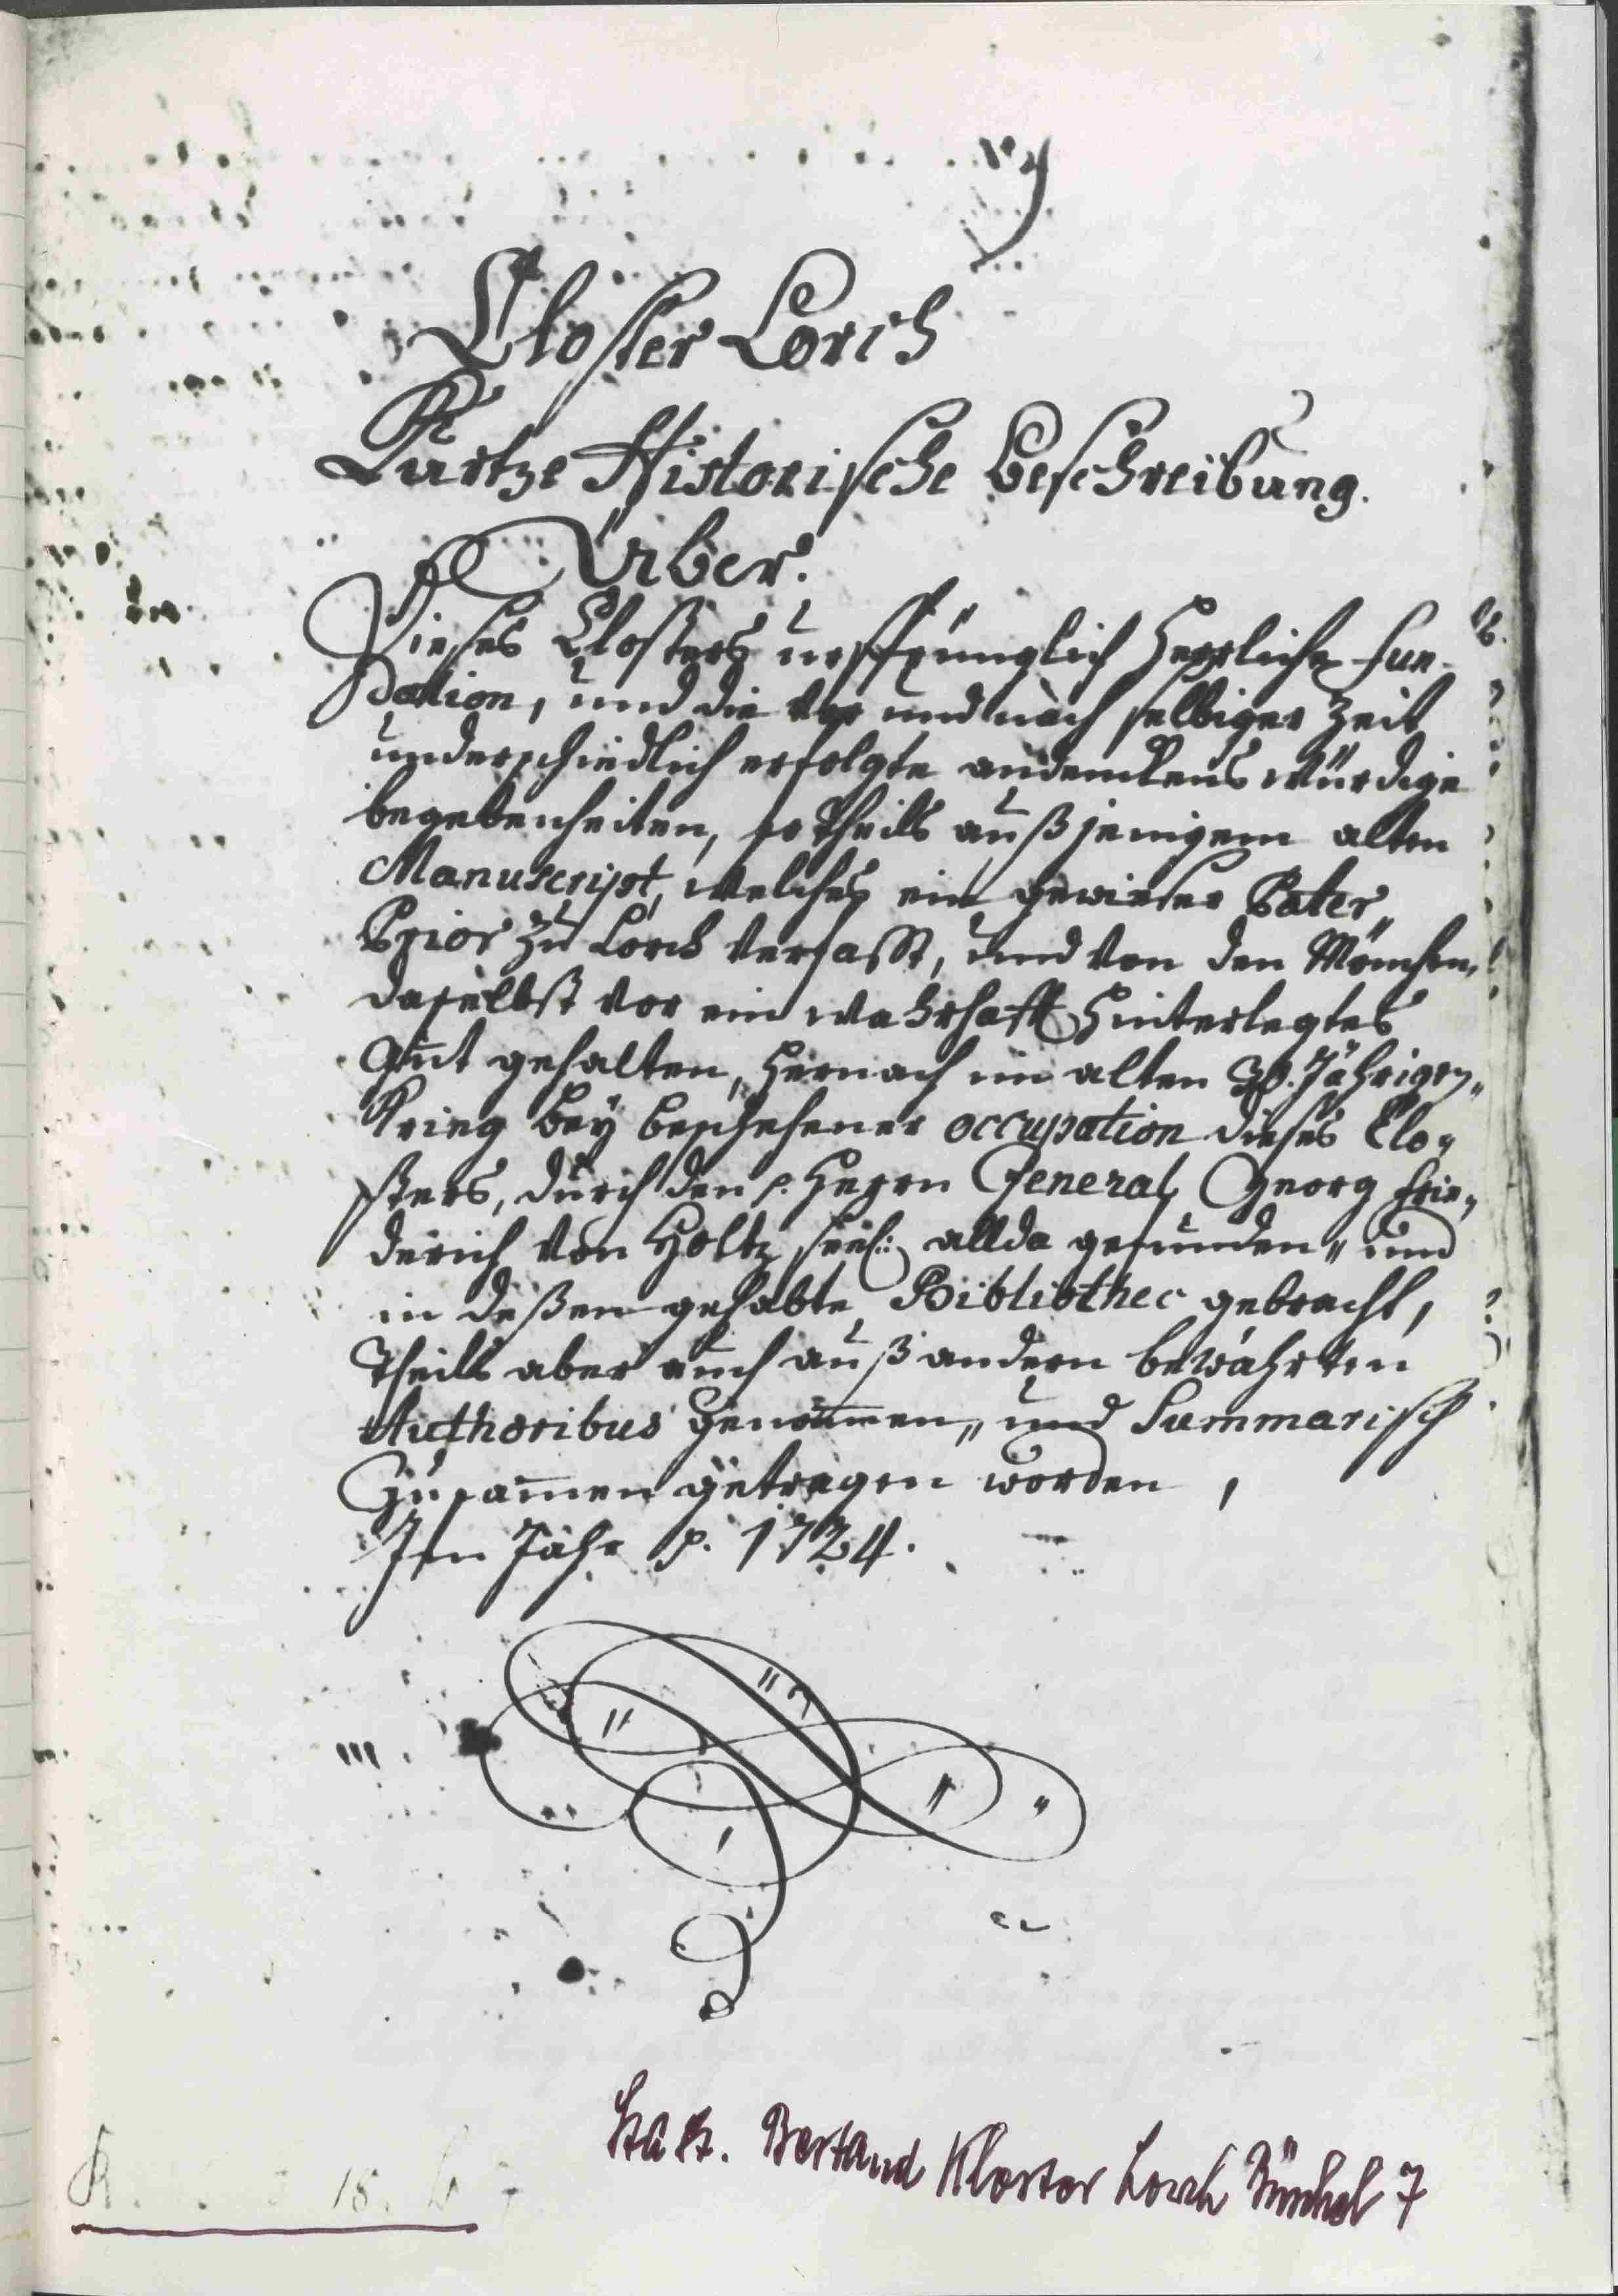 Closter Lorch
Kurtze Historische Beschreibung.
Über.
Dieses Closters ursprünglich Herrliche Fun-
dation, und die vor und nach selbiger Zeit
underschiedlich erfolgte andenckens würdige
begebenheiten, so theils auß jenigem alten
Manuscript, welches ein gewieser Pater
Prior zu Lorch verfasst, und von den Mönchen
daselbst vor ein wahrhafft hinterlegtes
Gut gehalten, hernach im alten 30. Jährigen
Krieg bey beschehener occupation dieses Clo-
sters, durch den p. Herrn General Georg Frie-
derich von Holtz seel: allda gefunden, und
in deßen gehabte Bibliothec gebracht,
theils aber auch auß andern bewährten
Authoribus genom̄en, und Summarisch
Zusam̄en getragen worden,
Im Jahr p. 1724.
StASt. Bestand Kloster Lorch Büschel 7
18.